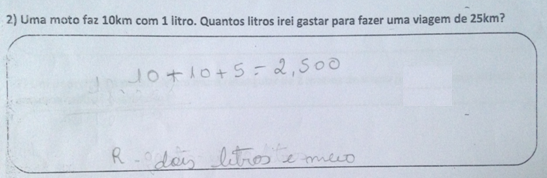 2) Uma moto faz 10km com 1 litro. Quantos litros irei gastar para fazer uma viagem de 25km?
10 + 10 + 5 = 2,500
R - dois litros e meio